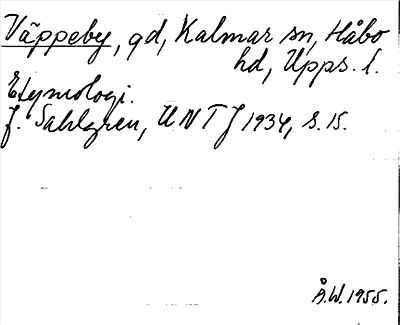 Väppeby, gd, Kalmar sn, Håbo
hd, Upps. l.
Etymologi.
J. Sahlgren, UNTJ 1934, s. 15.
Å.W. 1955.